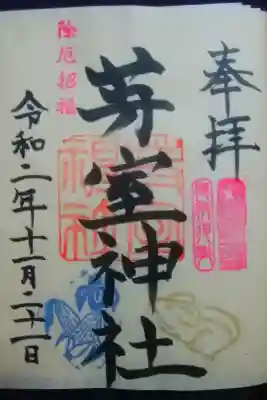 奉拝
芽室神社
除厄招福
令和二年十一月二十一日